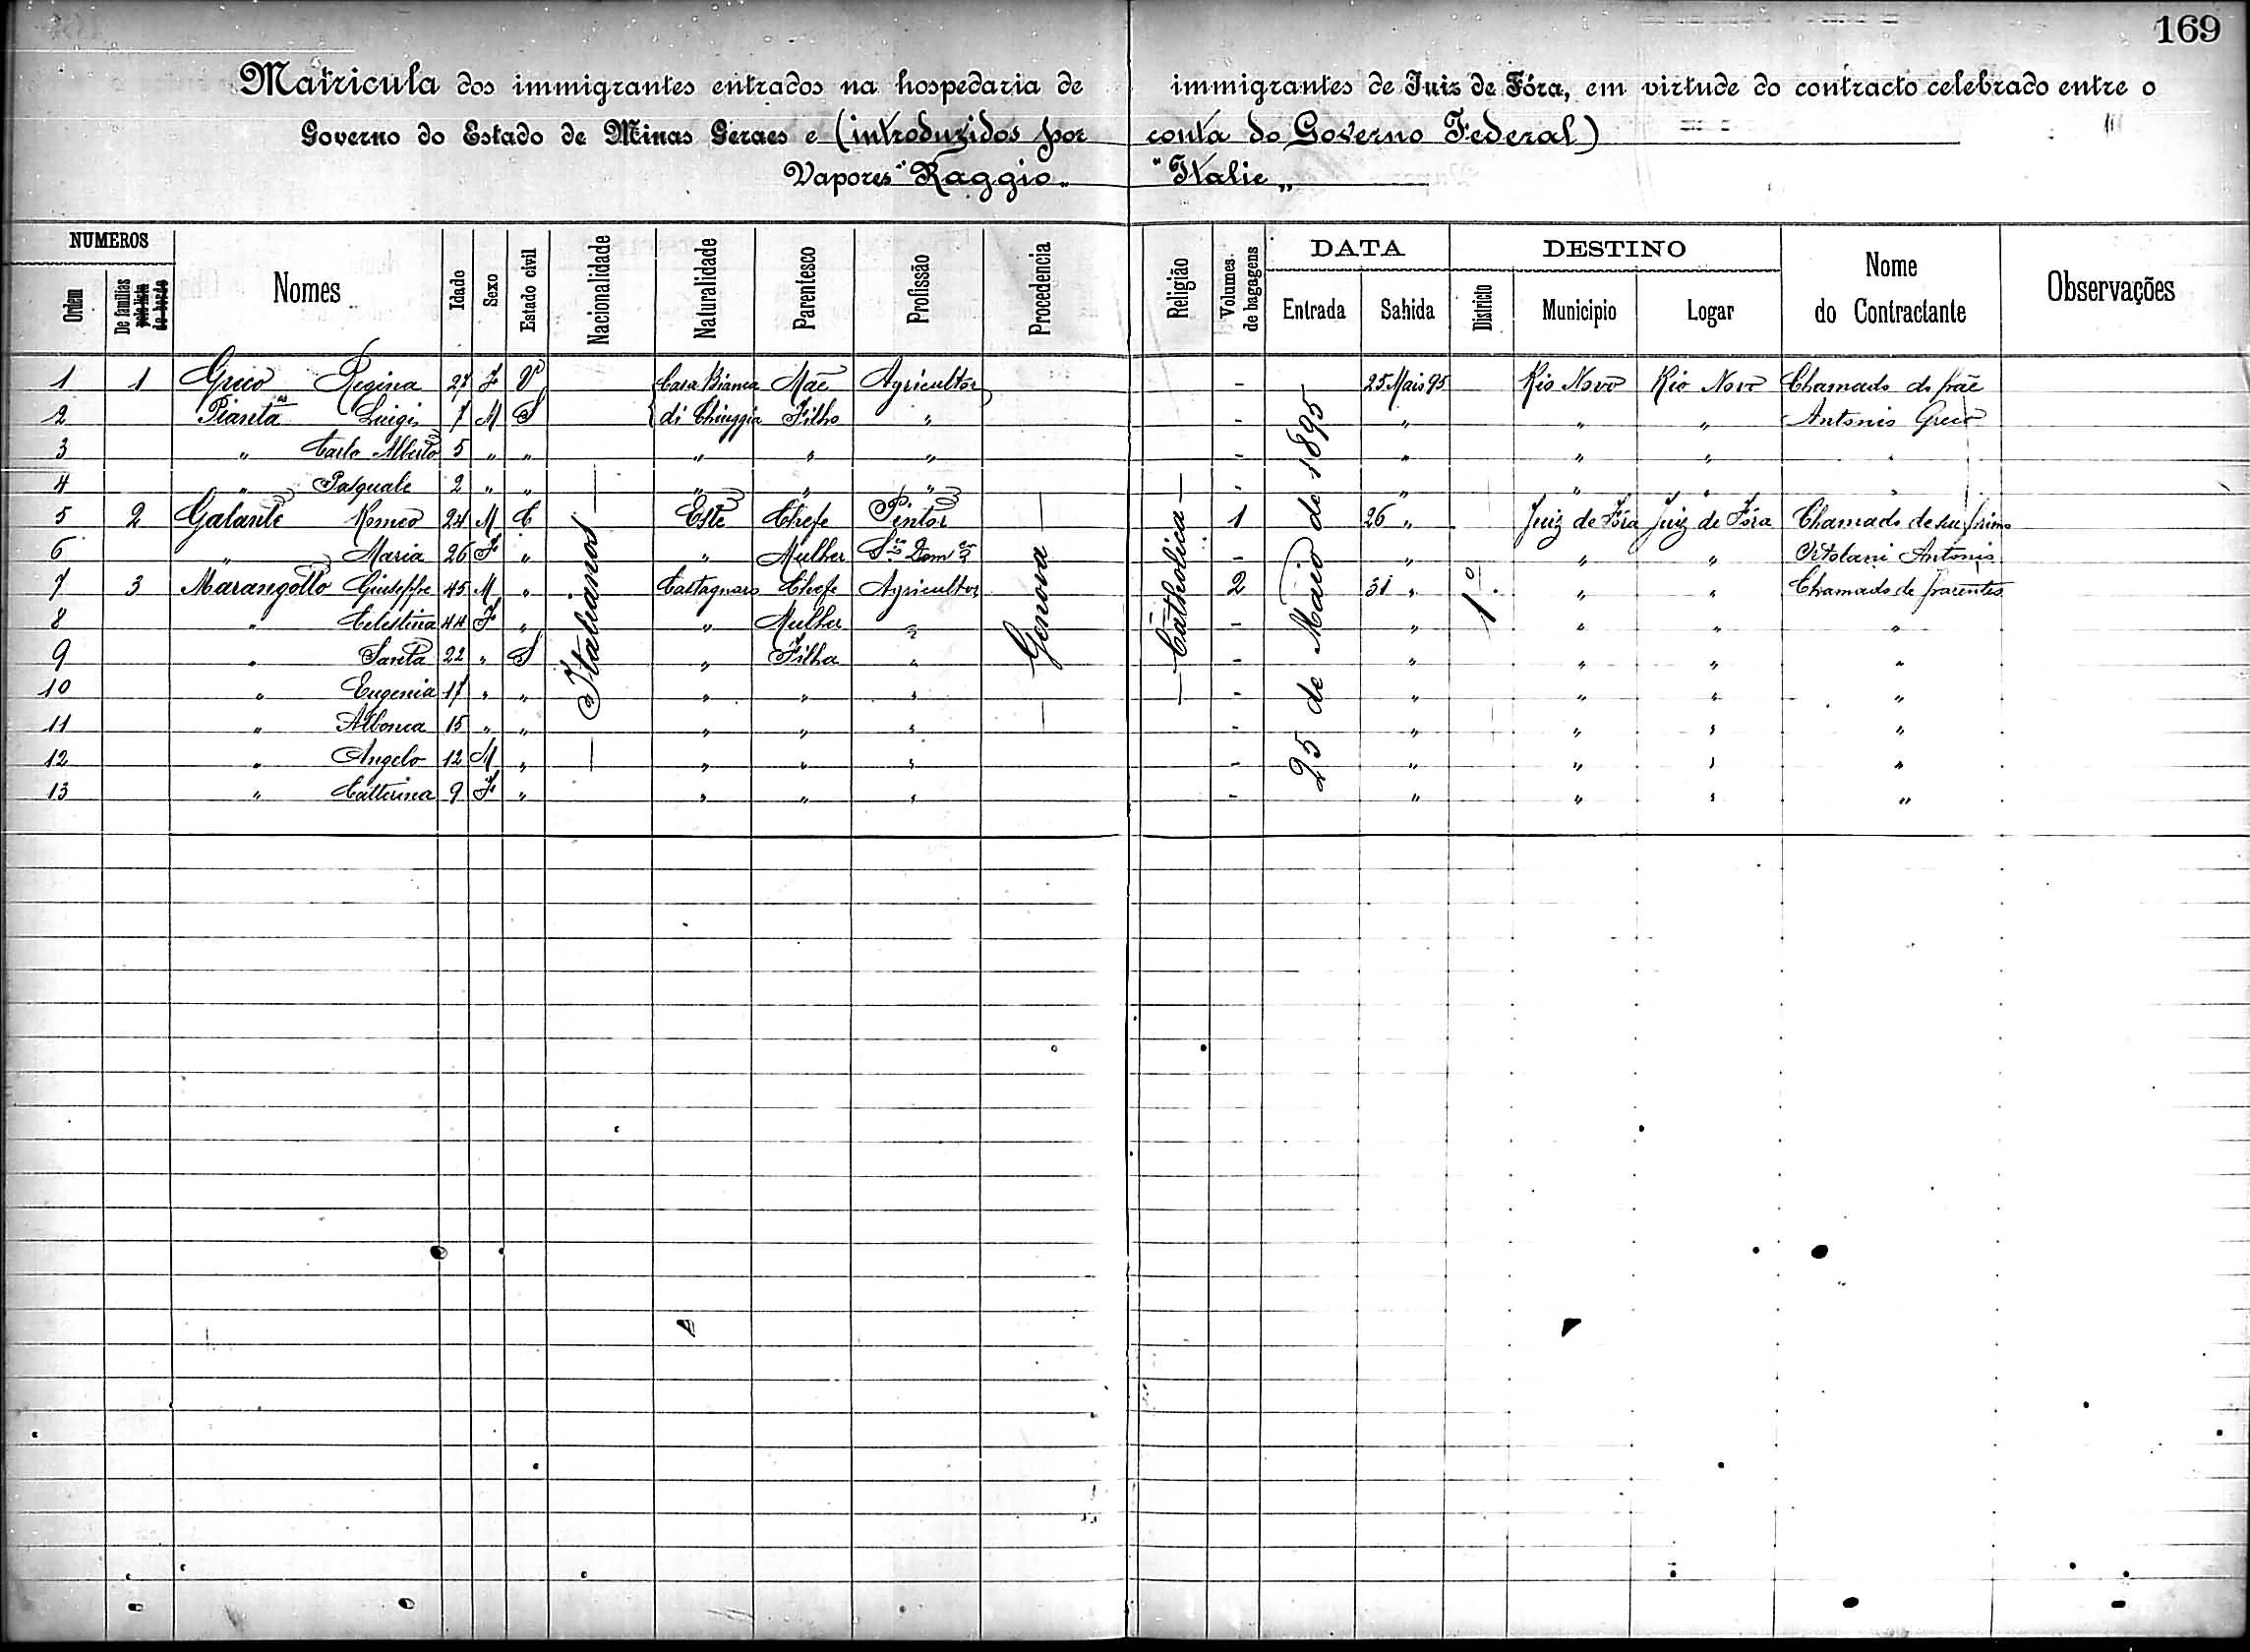 169
Matricula dos immigrantes entrados na hospedaria de immigrantes de Juiz de Fóra, em virtude do contracto celebrado entre o
Governo do Estado de Minas Geraes e (introduzidos por conta do Governo Federal)
Vapores "Raggio" "Italie"
NUMEROS
Ordem De familias pela lista de bordo Nomes Idade Sexo Estado civil Nacionalidade Naturalidade Parentesco Profissão Procedencia Religião Volumes de bagagens DATA Entrada Sahida DESTINO Districto Municipio Logar Nome do Contractante Observações
1 1 Greco Regina 27 F V Casa Bianca Mãe Agricultor - 25 Maio 95 Rio Novo Rio Novo Chamado do pãe
2 Pianta Luigi 7 M S di Chiuggia Filho " - " " " Antonio Greco
3 " Carlo Alberto 5 " " " " " - " " " "
4 " Pasquale 2 " " " " " - " " " "
5 2 Galante Romeo 24 M C Este Chefe Pintor 1 26 " Juiz de Fóra Juiz de Fóra Chamado de seu primo
6 " Maria 26 F " " Mulher - " " " Antonio
7 3 Marangotto Giuseppe 45 M " Castagnaro Chefe Agricultor 2 31 " " " Chamado de parentes
8 " Celestina 44 F " " Mulher " - " " " "
9 " Santa 22 " S " Filha " - " " " "
10 " Eugenia 17 " " " " " - " " " "
11 " 15 " " " " " - " " " "
12 " Angelo 12 M " " " " - " " " "
13 " Catterina 9 F " " " " - " " " "
— Italianos —
— Genova —
— Catholica —
25 de Maio de 1895
1º